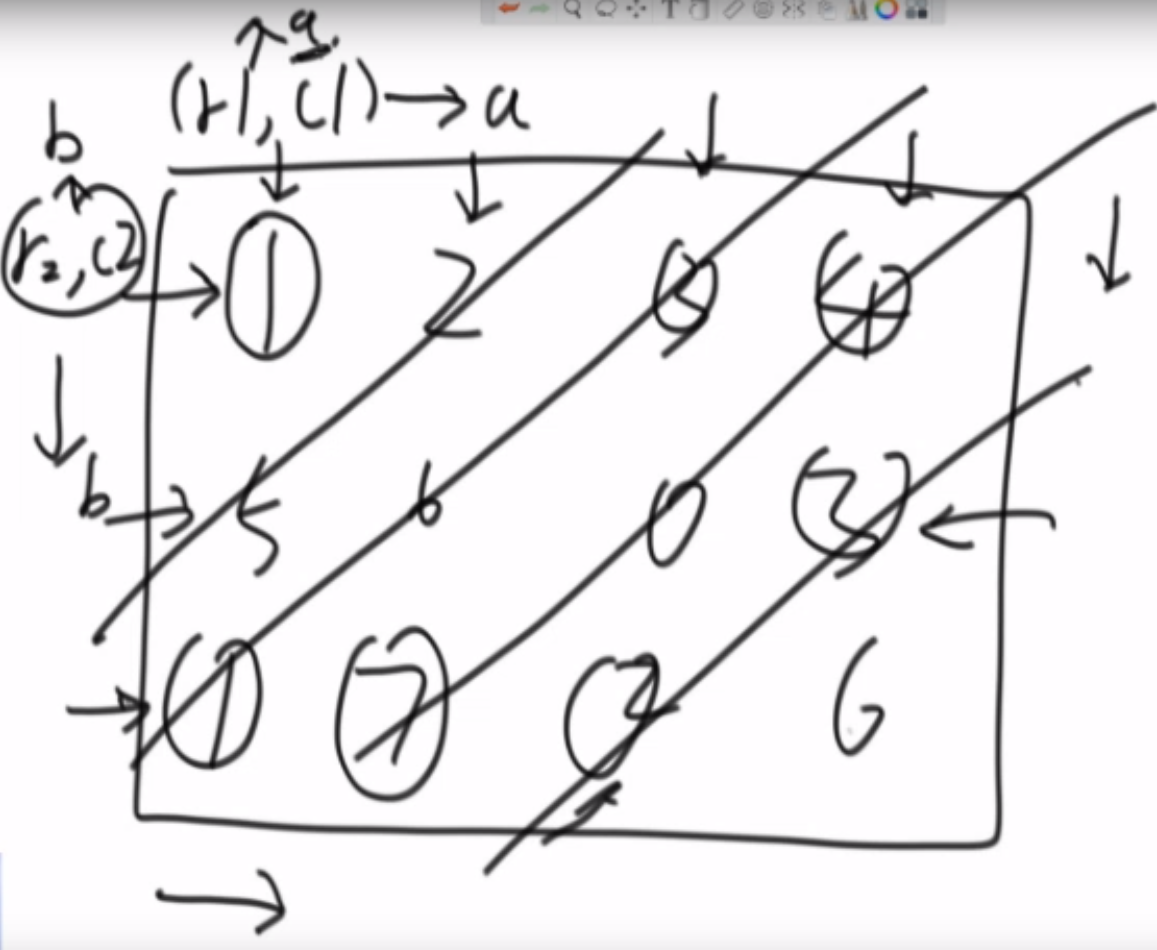 a.
(r1, c1) → a
b
r2, c2
1 2 3 4
b
5 6 0 3
1 7 2 6